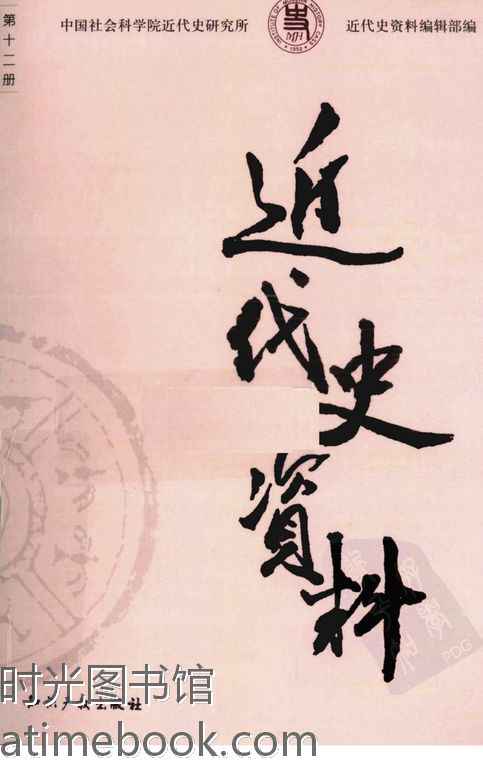 第十二册
中国社会科学院近代史研究所
近代史资料编辑部编
MH
1950
近代史資料
PDG
时光图书馆
知识产权出版社
atimebook.com